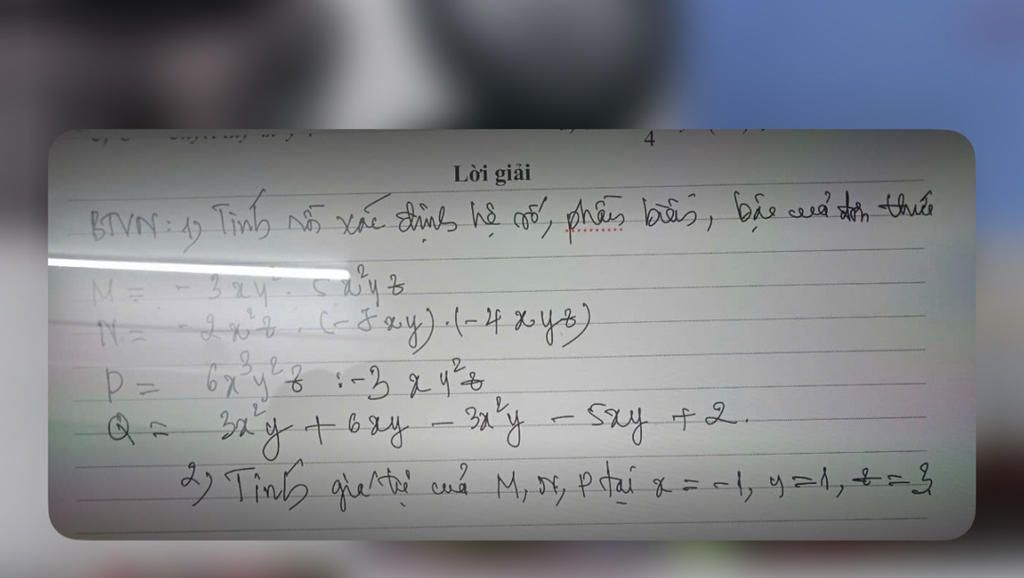 4
Lời giải
BTVN: 1) Tính rồi xác định hệ số, phần biến, bậc của đơn thức
M = - 3xy² . 5x²yz
N = - 2x²z . (-5xy) . (-4xyz)
P = 6x³y²z : -3 xy²z
Q = 3x²y + 6xy - 3x²y - 5xy + 2.
2) Tính giá trị của M, N, P tại x = -1, y = 1, z = 3